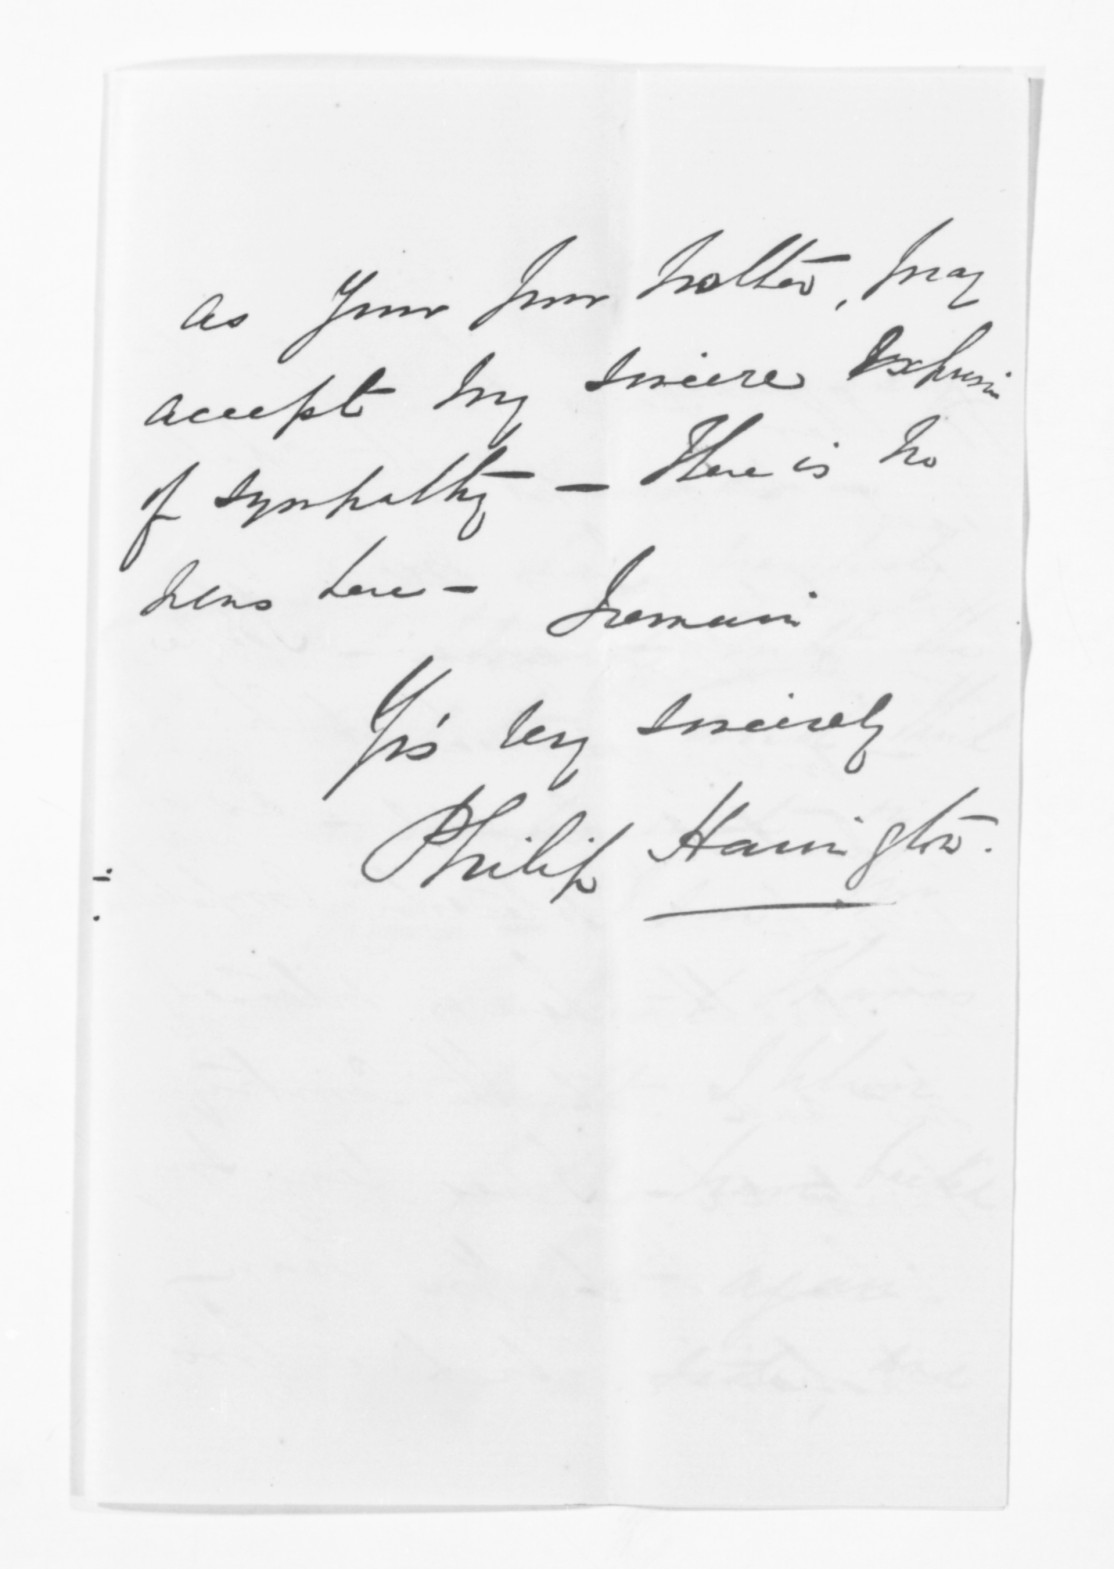 as your poor mother, pray
accept my sincere expression
of sympathy — There is no
news here — I remain
Yrs very sincerely
Philip Harington.